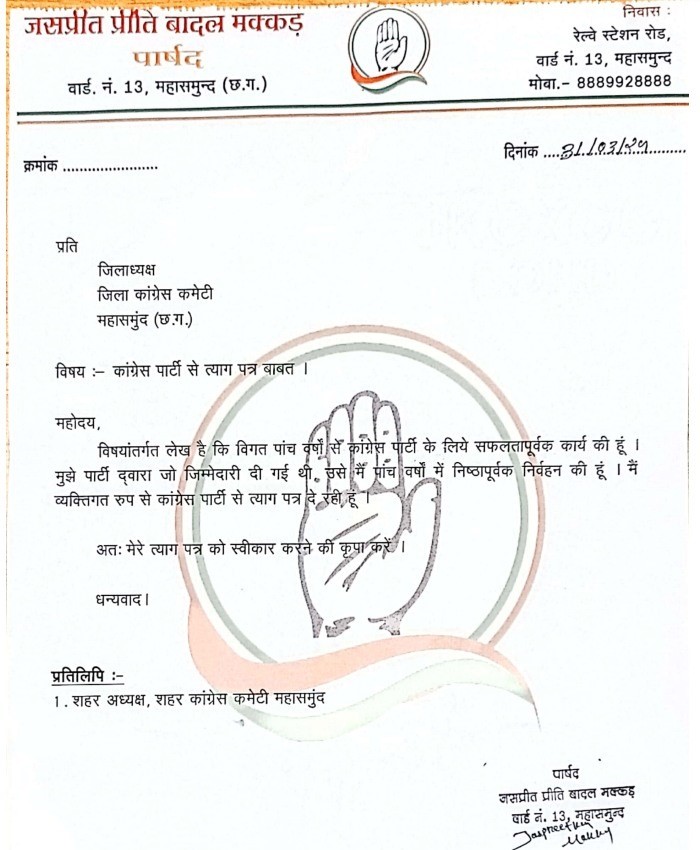 जसप्रीत प्रीति बादल मक्कड़
पार्षद
वार्ड. नं. 13, महासमुन्द (छ.ग.)
निवास :
रेल्वे स्टेशन रोड,
वार्ड नं. 13, महासमुन्द
मोबा.- 8889928888
क्रमांक .......................
दिनांक ....31/03/24.........
प्रति
जिलाध्यक्ष
जिला कांग्रेस कमेटी
महासमुंद (छ.ग.)
विषय :– कांग्रेस पार्टी से त्याग पत्र बाबत ।
महोदय,
विषयांतर्गत लेख है कि विगत पांच वर्षों से कांग्रेस पार्टी के लिये सफलतापूर्वक कार्य की हूं ।
मुझे पार्टी द्वारा जो जिम्मेदारी दी गई थी. उसे मैं पांच वर्षों में निष्ठापूर्वक निर्वहन की हूं । मैं
व्यक्तिगत रुप से कांग्रेस पार्टी से त्याग पत्र दे रही हूं ।
अतः मेरे त्याग पत्र को स्वीकार करने की कृपा करें ।
धन्यवाद।
प्रतिलिपि :–
1. शहर अध्यक्ष, शहर कांग्रेस कमेटी महासमुंद
पार्षद
जसप्रीत प्रीति बादल मक्कड़
वार्ड नं. 13, महासमुन्द
Jaspreet